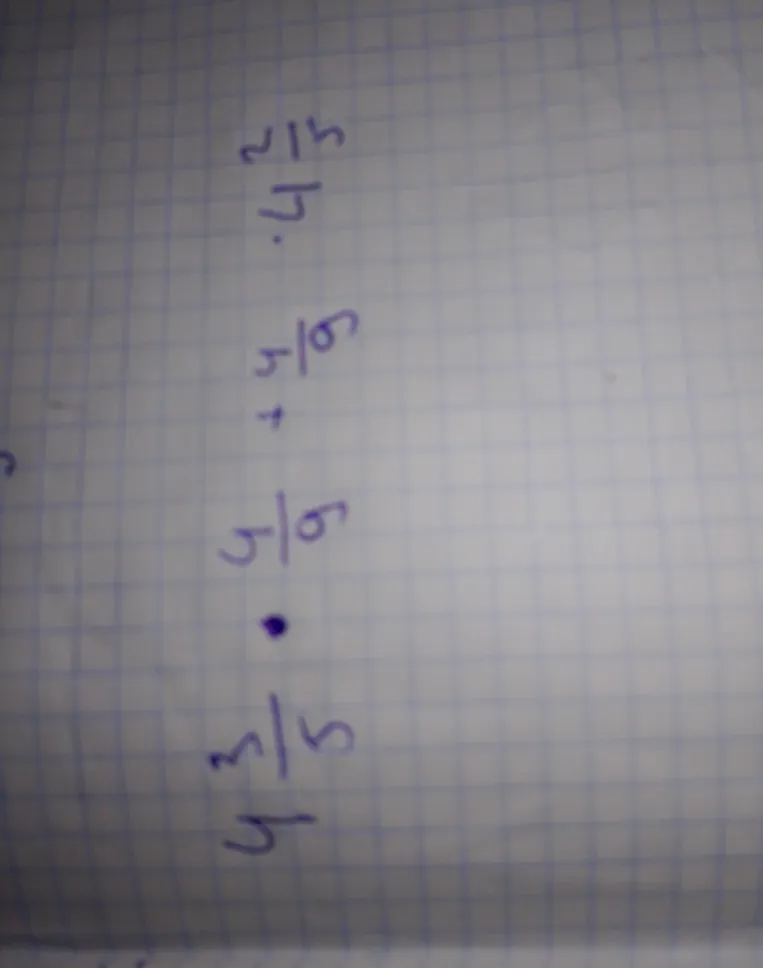 4 3/5 · 4/9 + 4/9 · 4 2/5